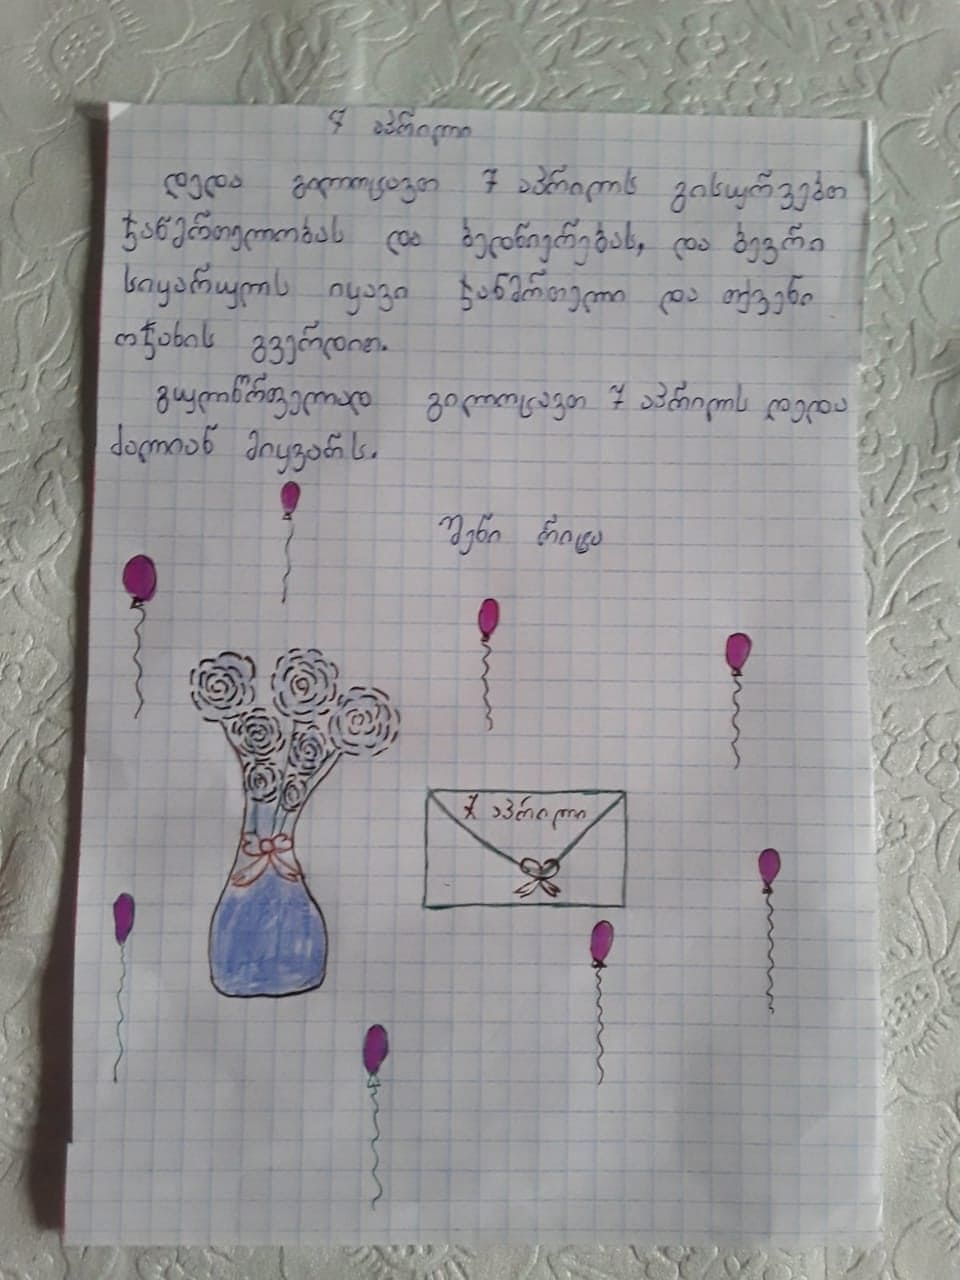 7 აპრილი
დედა გილოცავთ 7 აპრილს გისურვებთ
ჯანმრთელობას და ბედნიერებას, და ბევრი
სიყარულს იყავი ჯანმრთელი და თქვენი
ოჯახის გვერდით.
გულწრფელად გილოცავთ 7 აპრილს დედა
ძალიან მიყვარს.
შენი რიტა
7 აპრილი